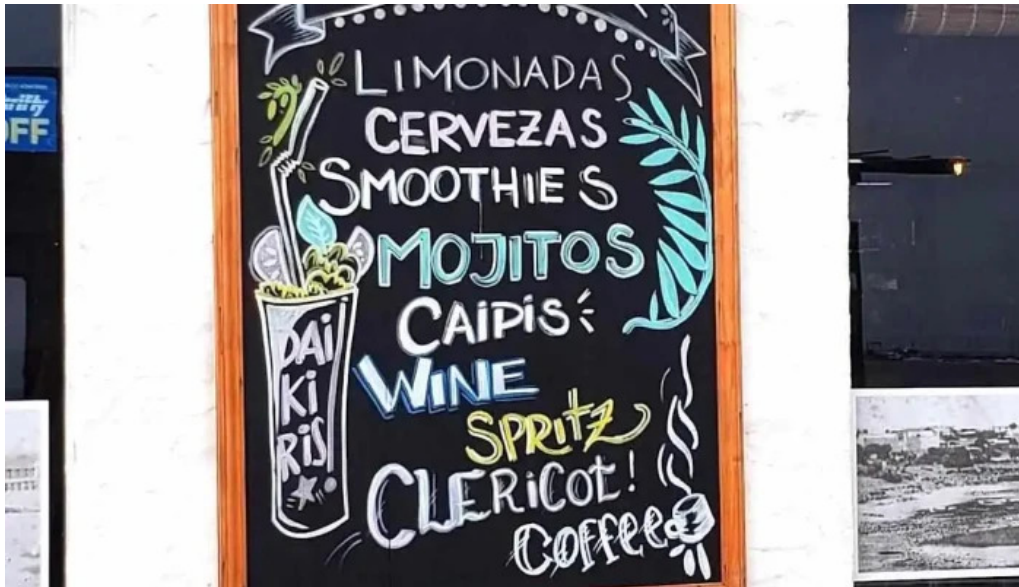 OFF
LIMONADAS
CERVEZAS
SMOOTHIES
MOJITOS
CAIPIS
WINE
SPRITZ
CLERICOT!
COFFEE
DAI
KI
RIS!